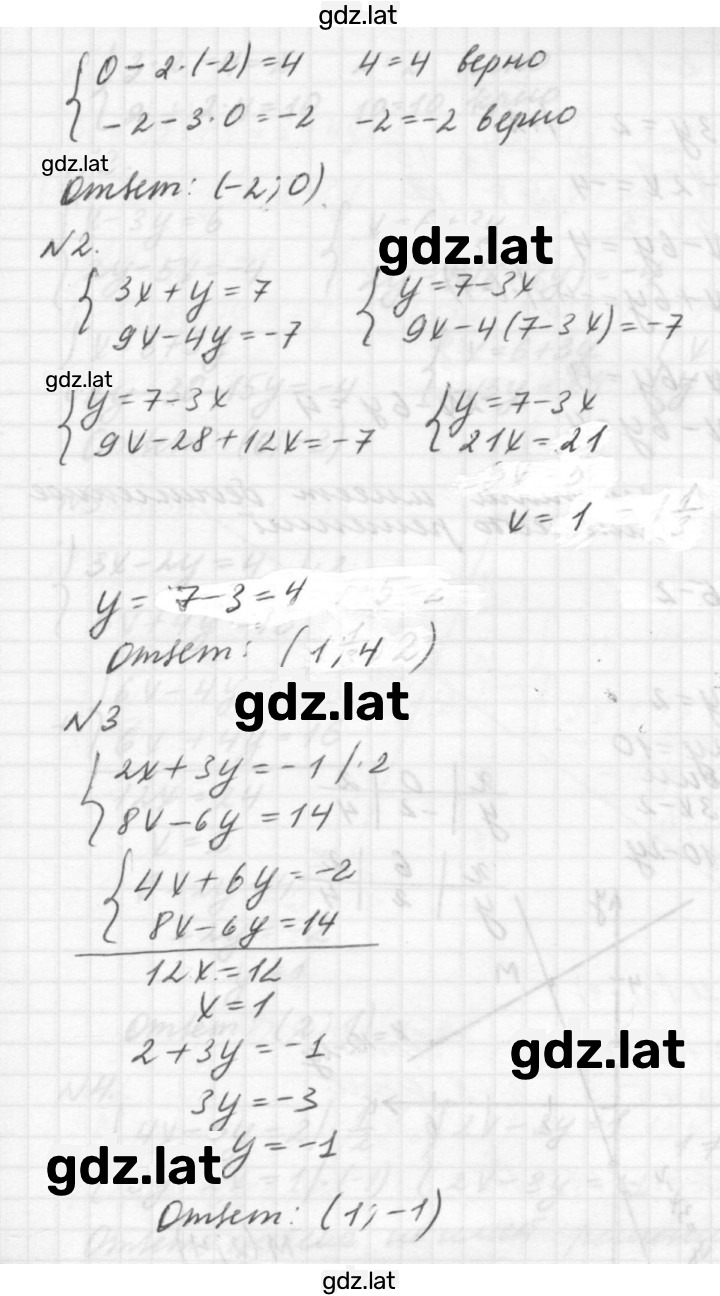 gdz.lat
0 - 2·(-2) = 4 4 = 4 верно
-2 - 3·0 = -2 -2 = -2 верно
gdz.lat
Ответ: (-2; 0)
№2.
gdz.lat
3x + y = 7 y = 7 - 3x
9x - 4y = -7 9x - 4(7 - 3x) = -7
gdz.lat
y = 7 - 3x y = 7 - 3x
9x - 28 + 12x = -7 21x = 21
x = 1
y = 7 - 3 = 4
Ответ: (1; 4)
gdz.lat
№3
2x + 3y = -1 |·2
8x - 6y = 14
4x + 6y = -2
8x - 6y = 14
12x = 12
x = 1
2 + 3y = -1
gdz.lat
3y = -3
y = -1
gdz.lat
Ответ: (1; -1)
gdz.lat